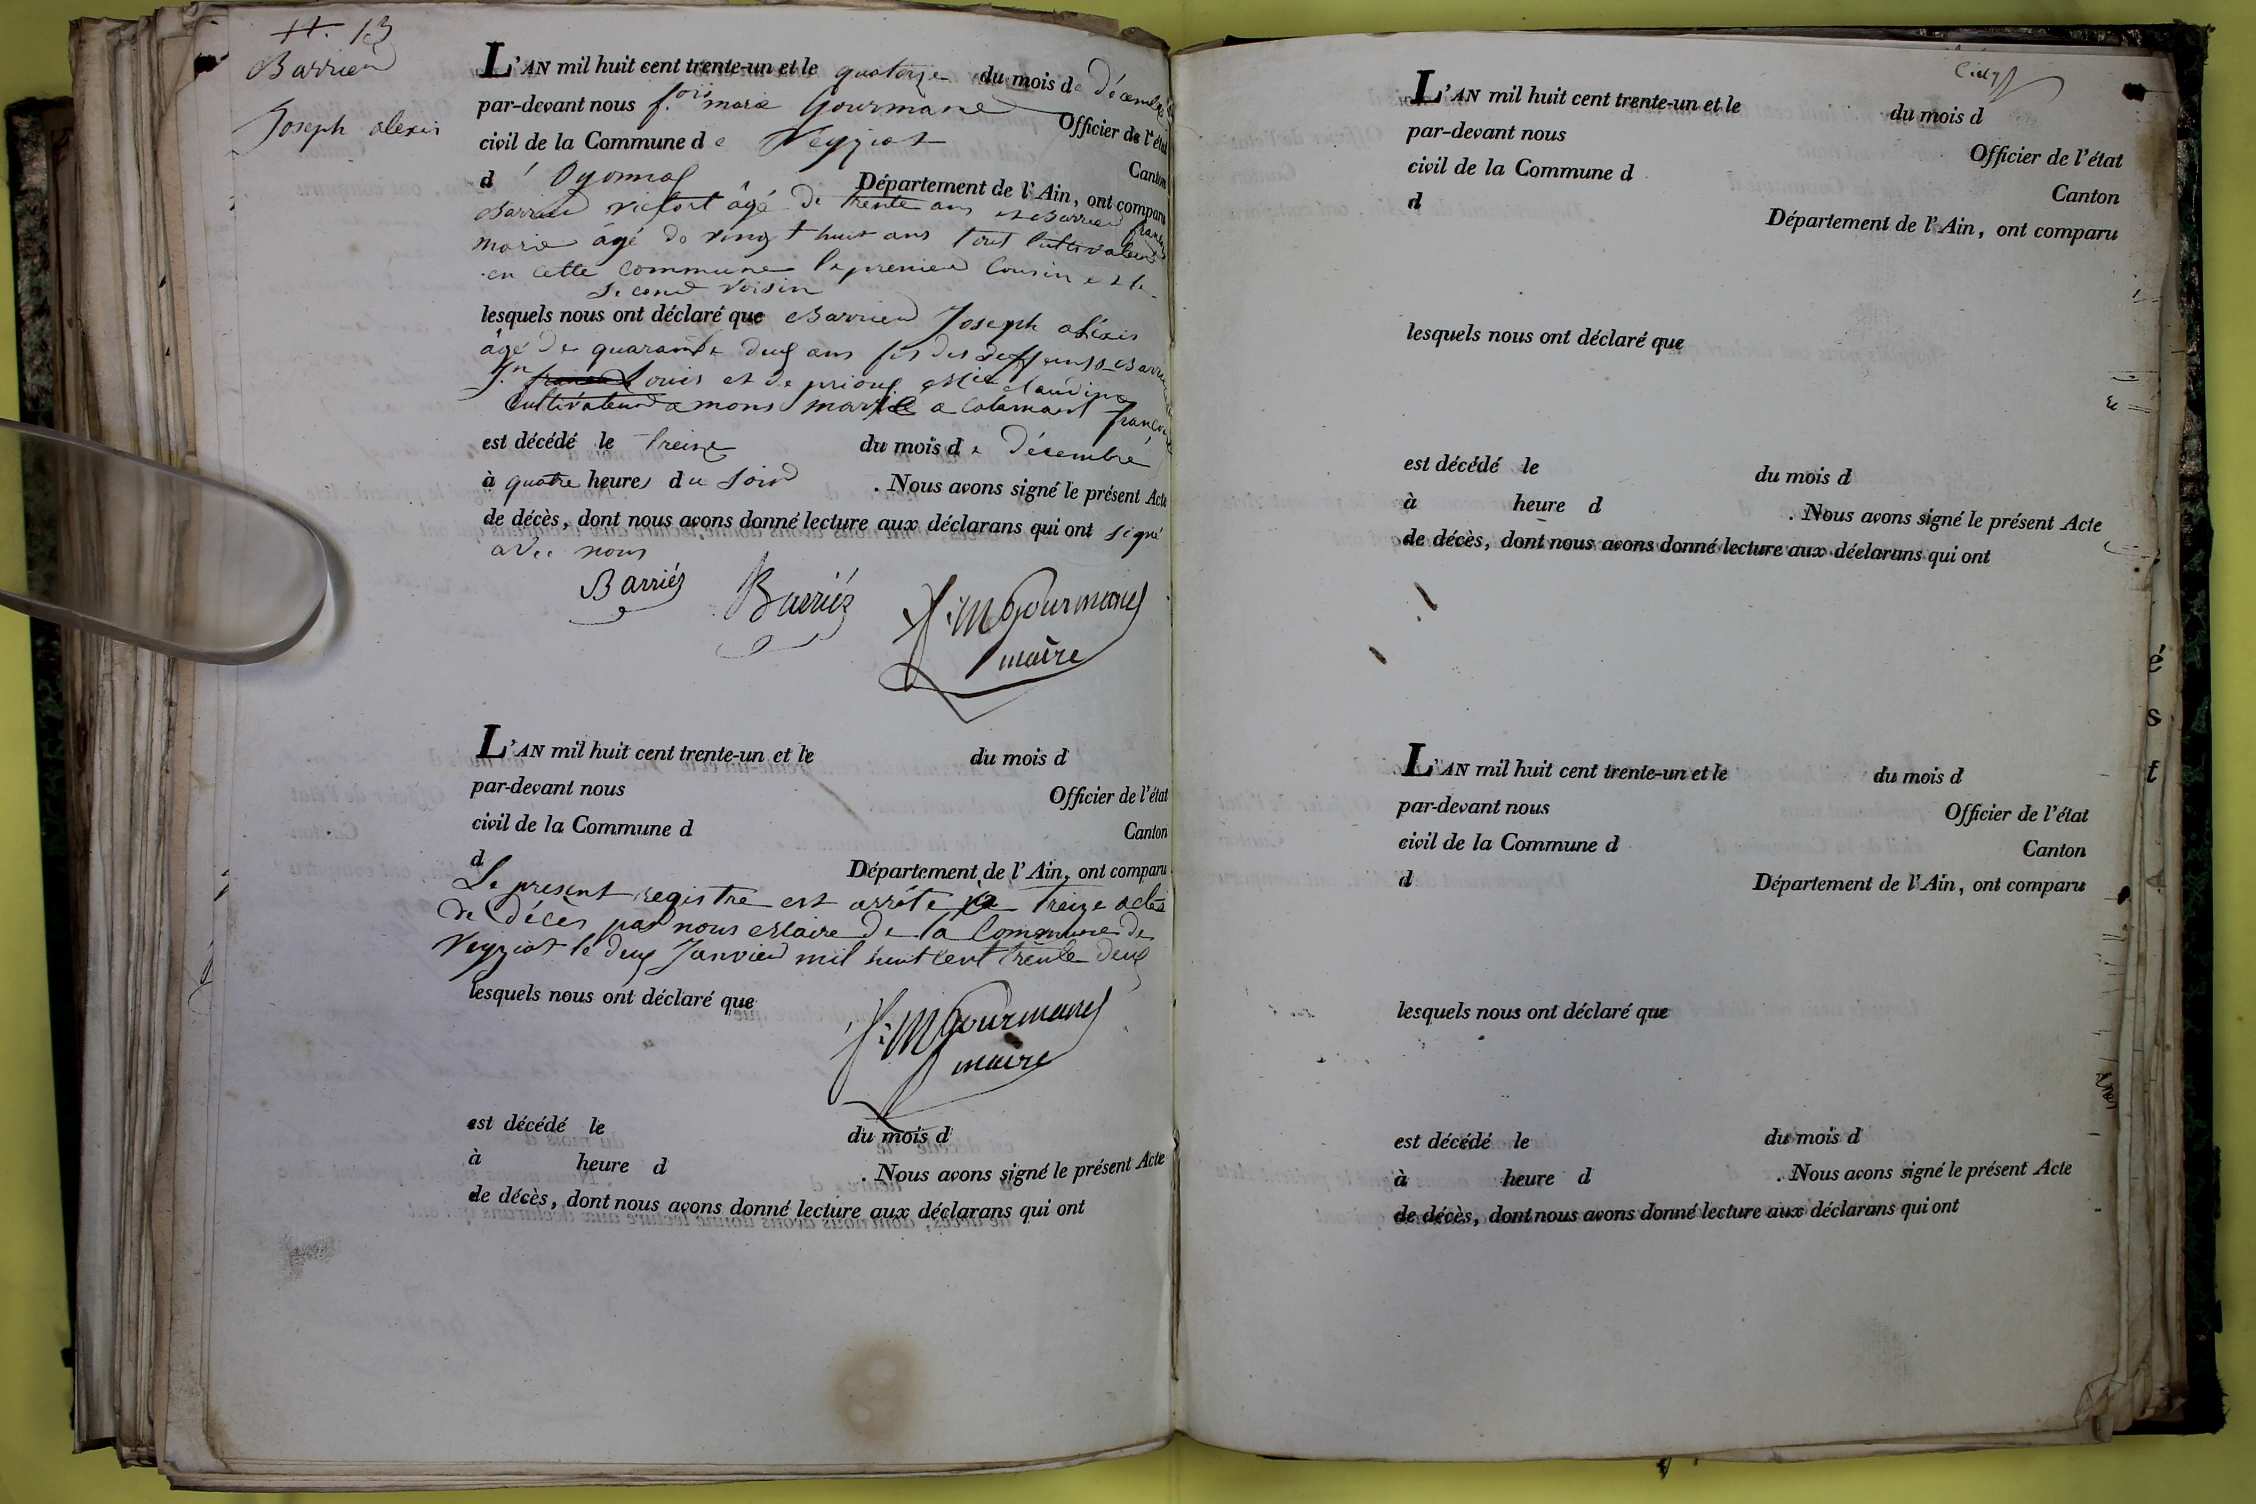 N. 13
Barrier
Joseph alexis
L'AN mil huit cent trente-un et le quatorze du mois de décembre
par-devant nous f.ois marie Gourmand Officier de l'état
civil de la Commune de Veyziat Canton
d'Oyonnax Département de l'Ain, ont comparu
Barrier victort âgé de trente ans et Barrier françois
marie âgé de vingt huit ans tout cultivateurs
en cette commune le premier Cousin et le
second voisin
lesquels nous ont déclaré que Barrier Joseph aléxis
âgé de quarante deux ans fils des deffunts Barrier
J.n Louis et de claudine
Cultivateur a mons marié a françoise
est décédé le treize du mois de Décembre
à quatre heures du soir . Nous avons signé le présent Acte
de décès, dont nous avons donné lecture aux déclarans qui ont signé
avec nous
Barriéz Barriéz f:M Gourmand
maire
L'AN mil huit cent trente-un et le du mois d
par-devant nous Officier de l'état
civil de la Commune d Canton
d Département de l'Ain, ont comparu
Le present registre est arrêté a treize actes
de décès par nous Maire de la Commune de
Veyziat le deux Janvier mil huit cent trente deux
lesquels nous ont déclaré que
f:M Gourmand
maire
est décédé le du mois d
à heure d . Nous avons signé le présent Acte
de décès, dont nous avons donné lecture aux déclarans qui ont
L'AN mil huit cent trente-un et le du mois d
par-devant nous Officier de l'état
civil de la Commune d Canton
d Département de l'Ain, ont comparu
lesquels nous ont déclaré que
est décédé le du mois d
à heure d . Nous avons signé le présent Acte
de décès, dont nous avons donné lecture aux déclarans qui ont
L'AN mil huit cent trente-un et le du mois d
par-devant nous Officier de l'état
civil de la Commune d Canton
d Département de l'Ain, ont comparu
lesquels nous ont déclaré que
est décédé le du mois d
à heure d . Nous avons signé le présent Acte
de décès, dont nous avons donné lecture aux déclarans qui ont
é
s
t